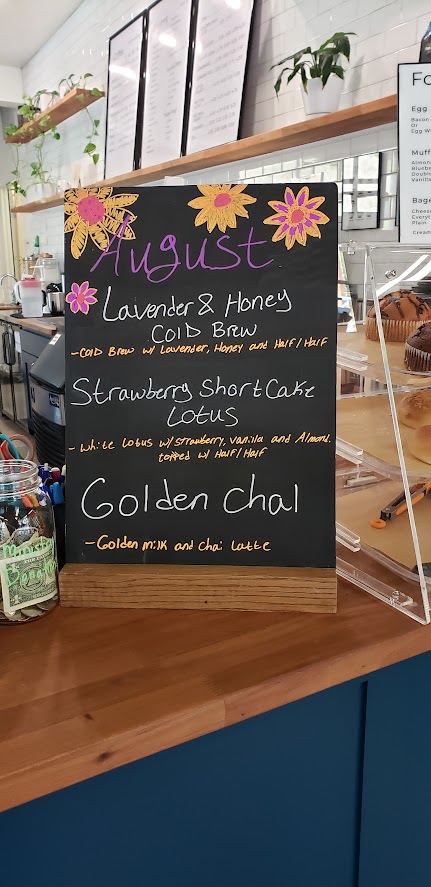 August
Lavender & Honey
Cold Brew
- Cold Brew w/ Lavender, Honey and Half/Half
Strawberry ShortCake
Lotus
- White Lotus w/ Strawberry, Vanilla and Almond.
topped w/ Half/Half
Golden Chai
- Golden milk and chai latte
Fo
Egg
Bacon
Or
Egg W
Muff
Almon
Bluebe
Double
Vanilla
Bage
Cheese
Everyt
Plain
Cream